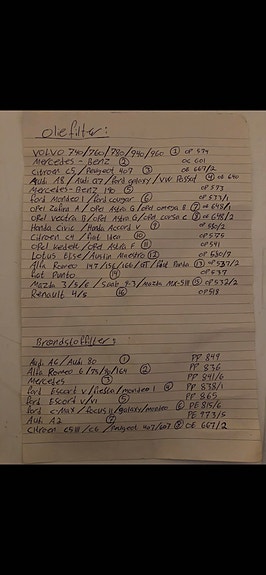 oliefilter:
VOLVO 740/760/780/940/960 ① OP 574
Mercedes - Benz ② OC 601
Citroën C5/Peugeot 407 ③ OE 667/2
Audi A8/Audi Q7/Ford galaxy/VW Passat ④ OE 640
Mercedes-Benz 190 ⑤ OP 573
Ford Mondeo I/Ford cougar ⑥ OP 573/1
Opel Zafira A/Opel Astra G/Opel omega B ⑦ OE 648/1
Opel Vectra B/Opel Astra G/Opel corsa C ⑧ OE 648/2
Honda Civic/Honda Accord V ⑨ OP 580/2
Citroen C4/Fiat Idea ⑩ OP 575
Opel kadett/Opel Astra F ⑪ OP 541
Lotus Elise/Austin Maestro ⑫ OP 530/7
Alfa Romeo 147/156/166/GT/Fiat Punto ⑬ OP 537/2
Fiat Punto ⑭ OP 537
Mazda 3/5/6/Saab 9-3/Mazda MX-5 III ⑮ OP 532/2
Renault 4/5 ⑯ OP 518
Brandstoffilter:
Audi A6/Audi 80 ① PP 849
Alfa Romeo 6/75/90/164 ② PP 836
Mercedes ③ PP 841/6
Ford Escort V/fiesta/mondeo I ④ PP 838/1
Ford Escort V/VI ⑤ PP 865
Ford C-Max/focus II/galaxy/mondeo ⑥ PE 815/6
Audi A2 ⑦ PE 973/5
Citroën C5 III/C6/Peugeot 407/607 ⑧ OE 667/2